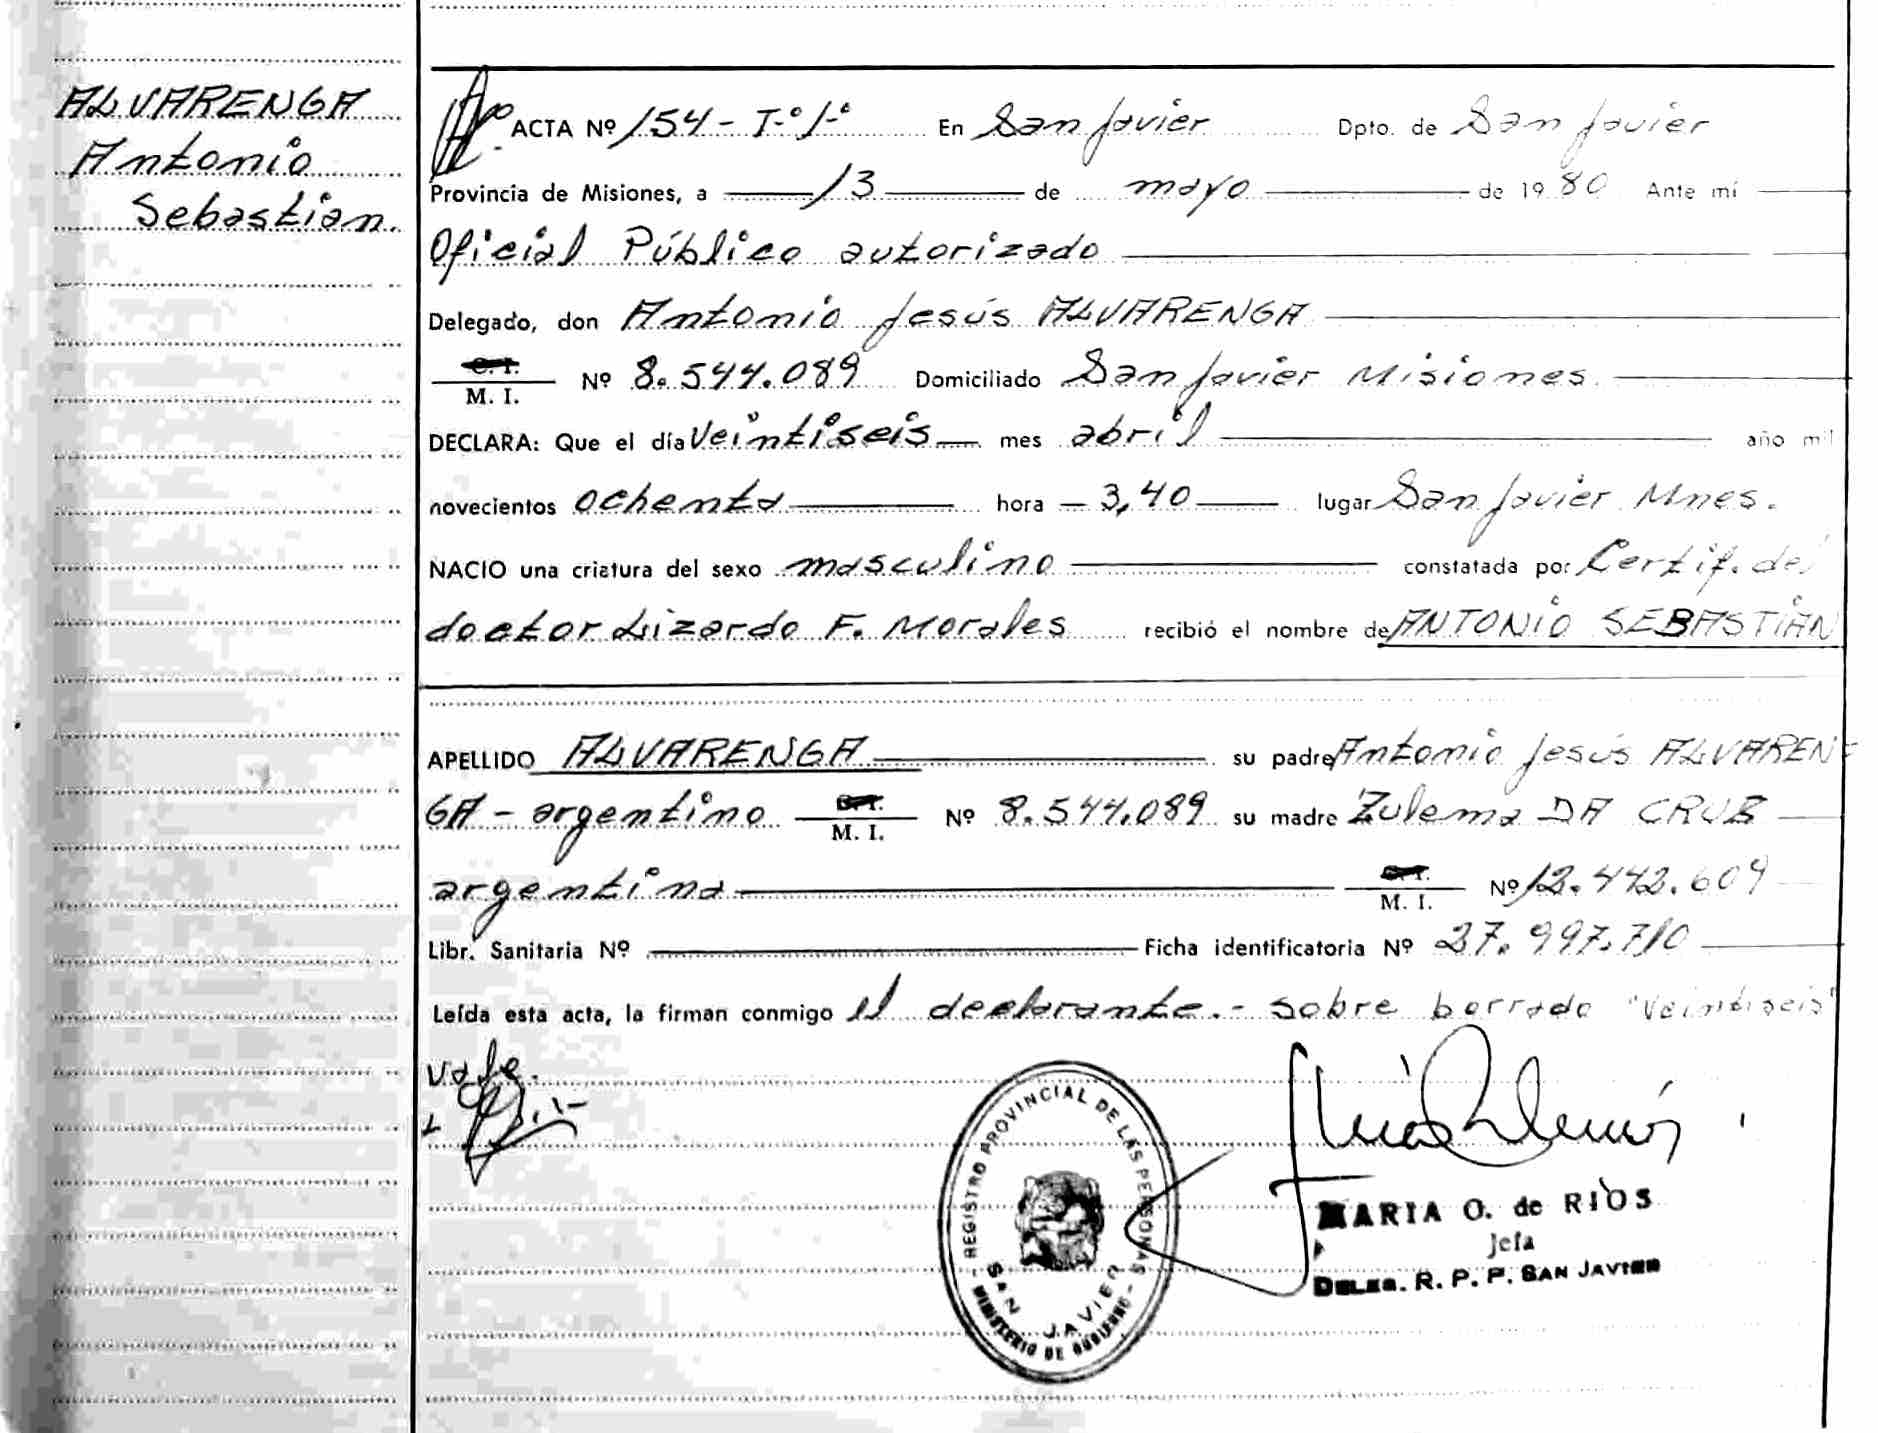 ALVARENGA
Antonio
Sebastián.
ACTA Nº 154 - T-º 1-º En San Javier Dpto. de San Javier
Provincia de Misiones, a 13 de mayo de 1980 Ante mí
Oficial Público autorizado
Delegado, don Antonio Jesús ALVARENGA
C. I.
M. I. Nº 8.544.089 Domiciliado San Javier Misiones
DECLARA: Que el día Veintiseis mes abril año mil
novecientos ochenta hora - 3,40 lugar San Javier Mnes.
NACIO una criatura del sexo masculino constatada por Certif. del
doctor Lizardo F. Morales recibió el nombre de ANTONIO SEBASTIÁN
APELLIDO ALVARENGA su padre Antonio Jesús ALVAREN
GA - argentino C. I. M. I. Nº 8.544.089 su madre Zulema DA CRUZ
argentina C. I. M. I. Nº 12.442.609
Libr. Sanitaria Nº Ficha identificatoria Nº 27.997.710
Leída esta acta, la firman conmigo el declarante.- sobre borrado "Veintiseis"
Vale.
REGISTRO PROVINCIAL DE LAS PERSONAS
SAN JAVIER
- MINISTERIO DE GOBIERNO -
MARIA O. de RIOS
Jefa
DELEG. R. P. P. SAN JAVIER